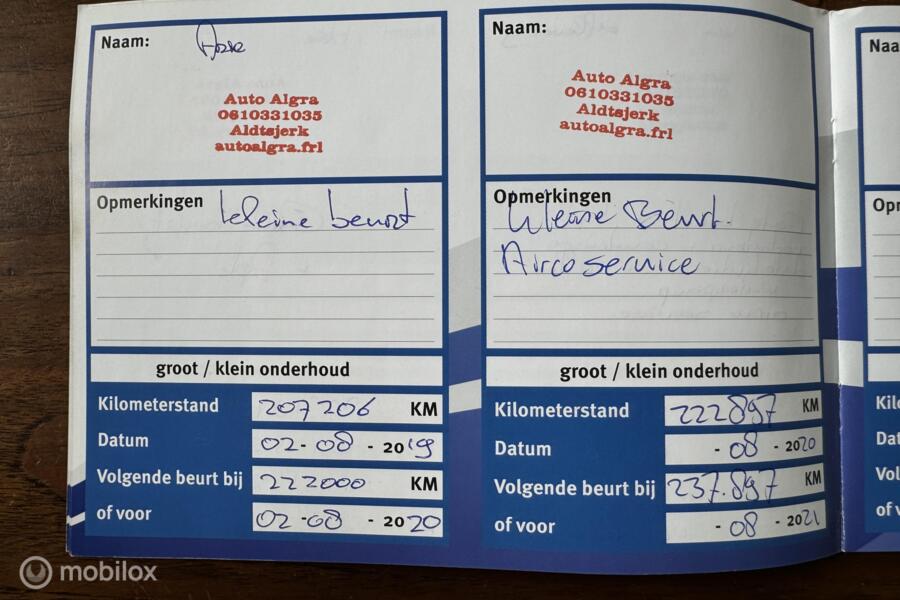 Naam:
Auto Algra
0610331035
Aldtsjerk
autoalgra.frl
Opmerkingen kleine beurt
groot / klein onderhoud
Kilometerstand 207206 KM
Datum 02-08-2019
Volgende beurt bij 222000 KM
of voor 02-08-2020
Naam:
Auto Algra
0610331035
Aldtsjerk
autoalgra.frl
Opmerkingen
kleine Beurt.
Airco service
groot / klein onderhoud
Kilometerstand 222897 KM
Datum -08-2020
Volgende beurt bij 237.897 KM
of voor -08-2021
Naa
Opm
Kil
Dat
Vol
of v
mobilox